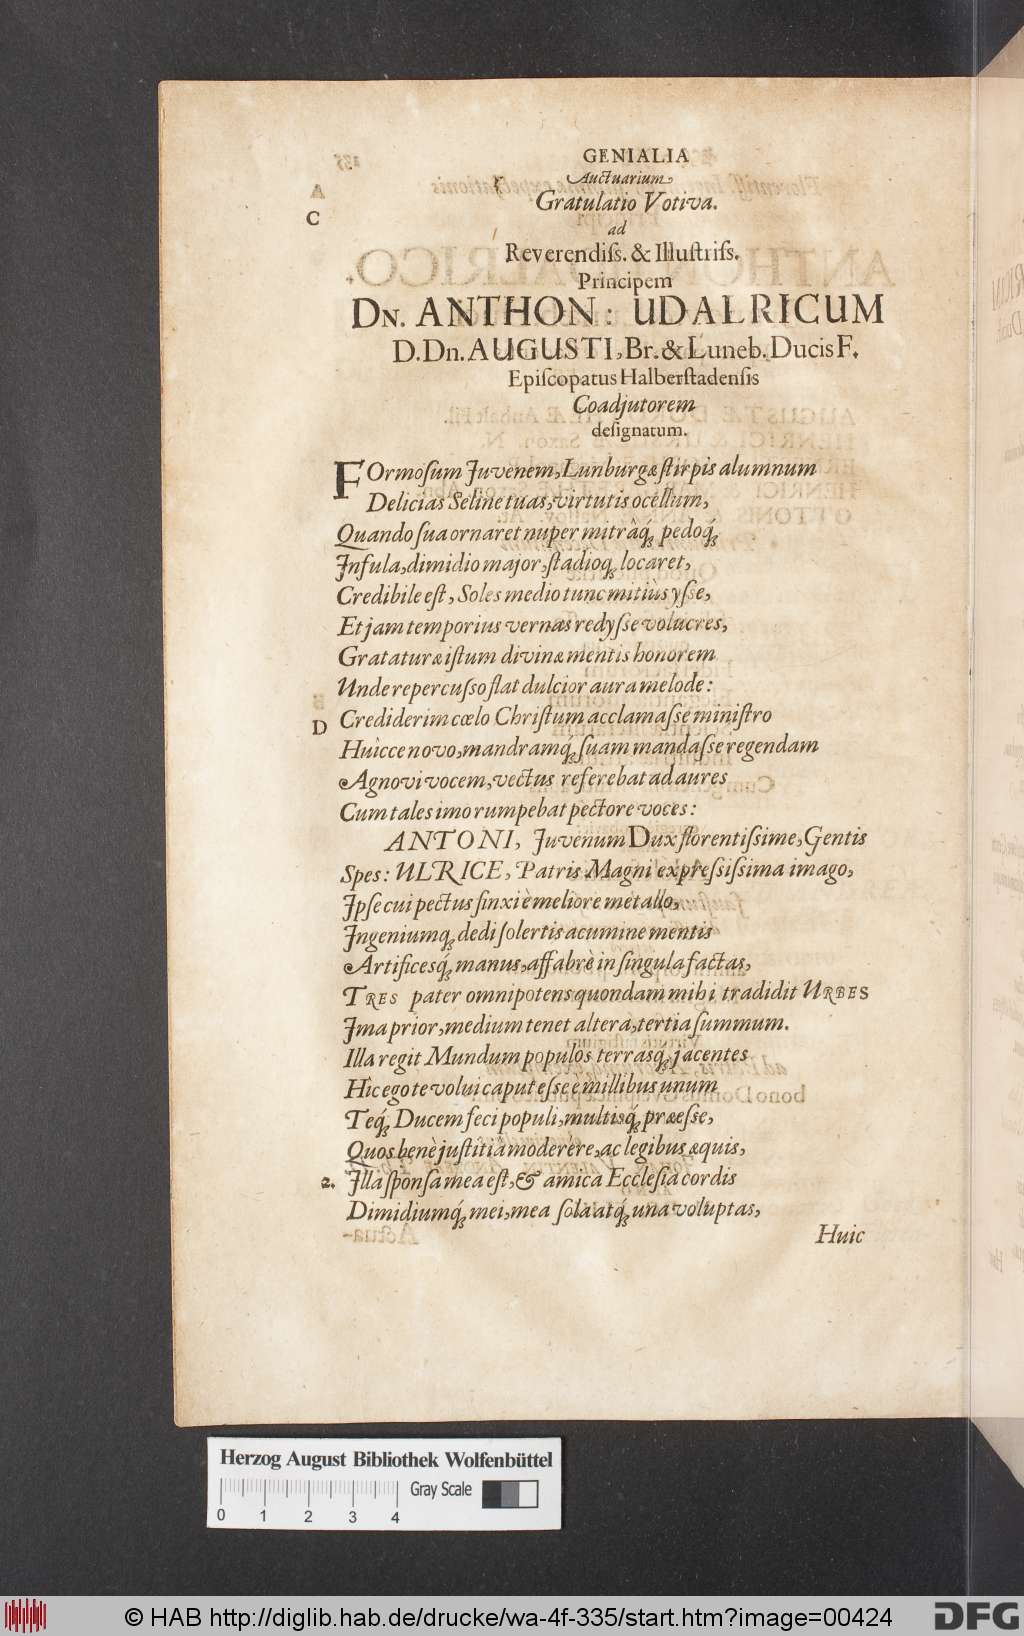 GENIALIA
Auctuarium
Gratulatio Votiva.
C
ad
Reverendiſſ. & Illuſtriſs.
Principem
DN. ANTHON: UDALRICUM
D. Dn. AUGUSTI, Br. & Luneb. Ducis F.
Epiſcopatus Halberſtadenſis
Coadjutorem
deſignatum.
FOrmoſum Juvenem, Lunburgæ ſtirpis alumnum
Delicias Seline tuas, virtutis ocellum,
Quando ſua ornaret nuper mitrâq́; pedoq́;
Jnfula, dimidio major, ſtadioq; locaret,
Credibile eſt, Soles medio tunc mitiùs yſſe,
Et jam temporius vernas redyſſe volucres,
Gratatur æiſtum divinæ mentis honorem
Unde repercuſſo flat dulcior aura melode:
D Crediderim cœlo Chriſtum acclamaſſe miniſtro
Huicce novo, mandramq́; ſuam mandaſſe regendam
Agnovi vocem, vectus referebat ad aures
Cum tales imo rumpebat pectore voces:
ANTONI, Juvenum Dux florentiſsime, Gentis
Spes: ULRICE, Patris Magni expreſsiſsima imago,
Jpſe cui pectus finxi è meliore metallo,
Jngeniumq; dedi ſolertis acumine mentis
Artificesq́; manus, affabrè in ſingula factas,
TRES pater omnipotens quondam mihi tradidit URBES
Jma prior, medium tenet altera, tertia ſummum.
Illa regit Mundum populos terrasq; jacentes
Hîc ego te volui caput eſse è millibus unum
Teq́; Ducem feci populi, multisq́; præeſse,
Quos benè juſtitiâ moderére, ac legibus æquis,
2. Jlla ſponſa mea eſt, & amica Eccleſia cordis
Dimidiumq́; mei, mea ſola atq́; una voluptas,
Huic
Herzog August Bibliothek Wolfenbüttel
Gray Scale
0 1 2 3 4
© HAB http://diglib.hab.de/drucke/wa-4f-335/start.htm?image=00424
DFG